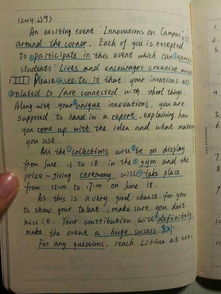 An exciting event 'Innovations on Campus' is
around the corner. Each of you is excepted
to participate in this event which can enrich
students' lives and encourages creative mind
Please see to it that your inventions are
related to / are connected with school things.
Along with your unique innovations, you are
supposed to hand in a report, explaining how
you come up with the idea and what materials
you use.
All the collections will be on display
from June 16 to 18 in the gym and the
prize-giving ceremony will take place
from 15:00 to 17:00 on June 18.
As this is a very good chance for you
to show your talent, make sure you don't
miss it. Your contribution will definitely
make the event a huge success.
For any questions, reach LiHua at